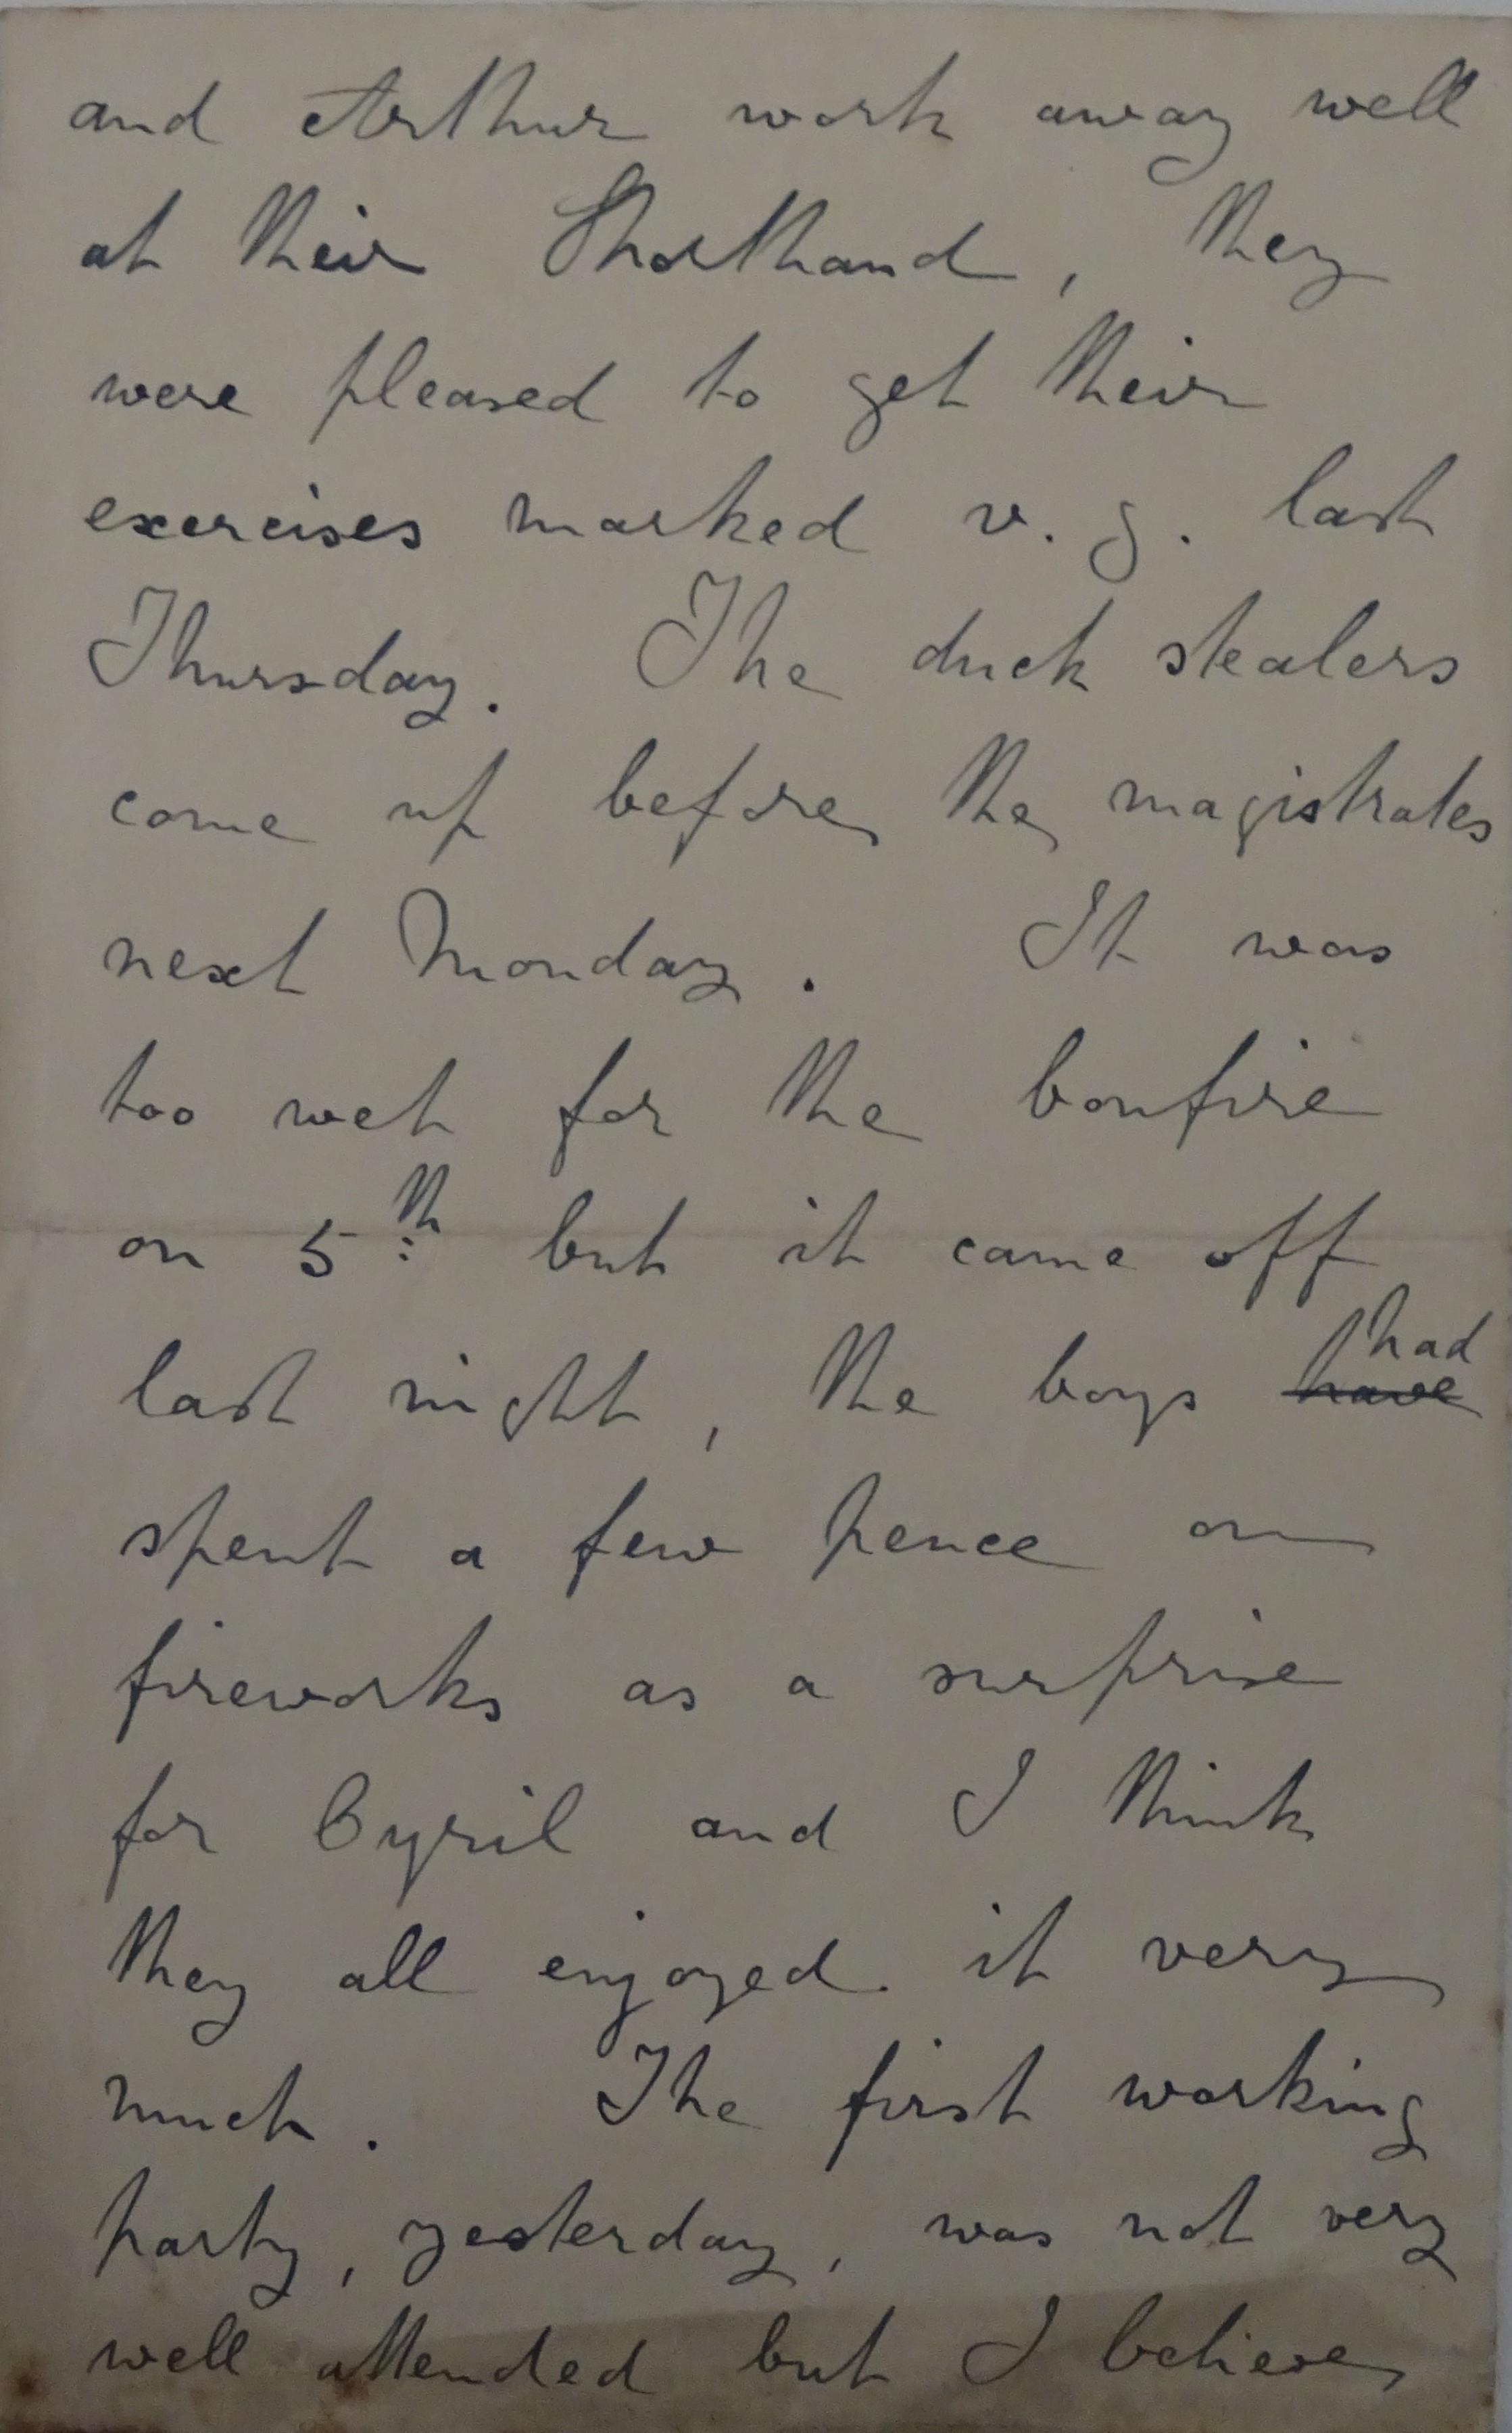 and Arthur work away well
at their Shorthand, they
were pleased to get their
exercises marked v. g. last
Thursday. The duck stealers
come up before the magistrates
next Monday. It was
too wet for the bonfire
on 5th but it came off
last night, the boys have had
spent a few pence on
fireworks as a surprise
for Cyril and I think
they all enjoyed it very
much. The first working
party, yesterday, was not very
well attended but I believe